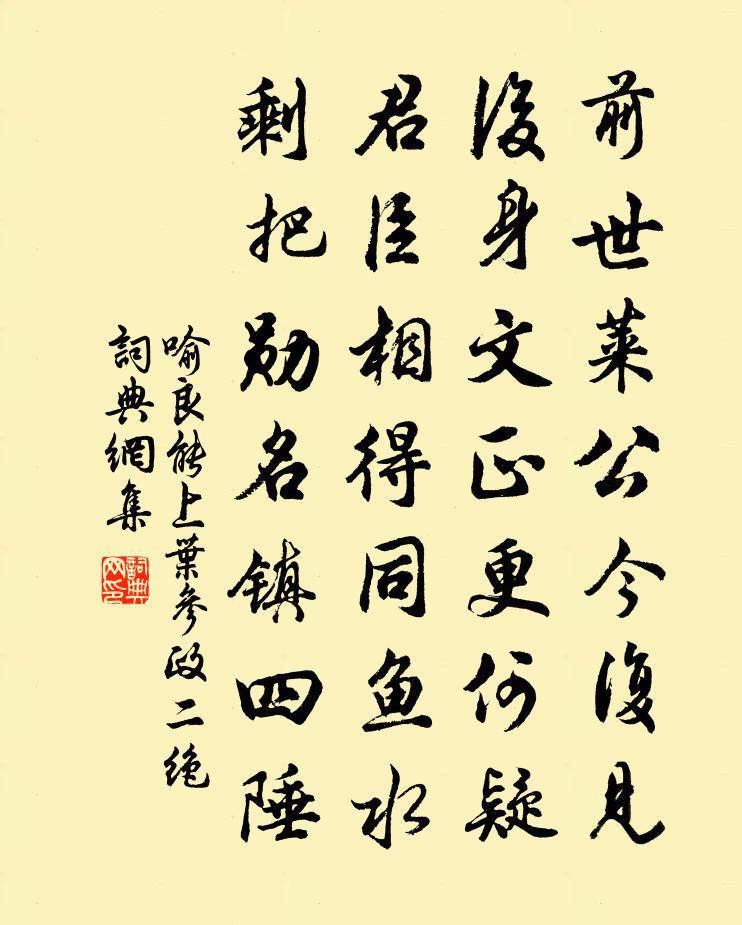 前世萊公今復見
後身文正更何疑
君臣相得同鱼水
剩把勋名镇四陲
喻良能上葉參政二絶
詞典網集
詞典網印